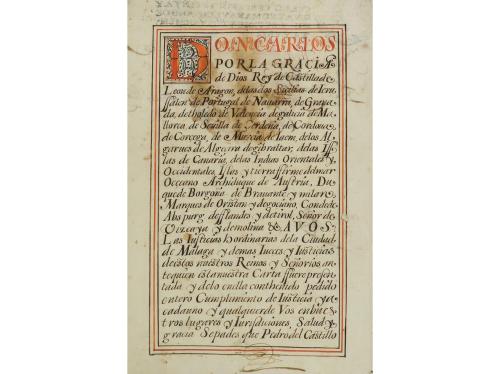 DON CARLOS
POR LA GRACIA
de Dios Rey de Castilla de
Leon de Aragon, de las dos Sicilias de Ieru
ssalen de Portugal de Nauarra, de Grana
da, de tholedo de Valencia de galicia de Ma
llorca, de Seuilla de Serdeña, de Cordoua
de Corcega, de Murcia de Iaem, de los Al
garues de Algecira de gibraltar, de las Iss
las de Canaria, de las Indias Orientales y,
Occidentales, Islas, y tierra ffirme del mar
Occeano Archiduque de Austria, Du
que de Borgoña de Brauante y milan,
Marques de Oristan y de gociano, Conde de
Abspurg, de fflandes y de tirol, Señor de
Vizcaya y de molina & A VOS
Las Iusticias hordinarias de la Ciudad
de Malaga y demas Iueces y Iusticias
de estos nuestros Reinos y Señorios an
te quien esta nuestra Carta ffuere presen
tada y de lo en ella conthenido pedido
entero Cumplimiento de Iusticia y a
cada uno y qualquier de Vos en bues
tros lugares y Iurisdiciones, Salud y
gracia Sepades que Pedro del Castillo